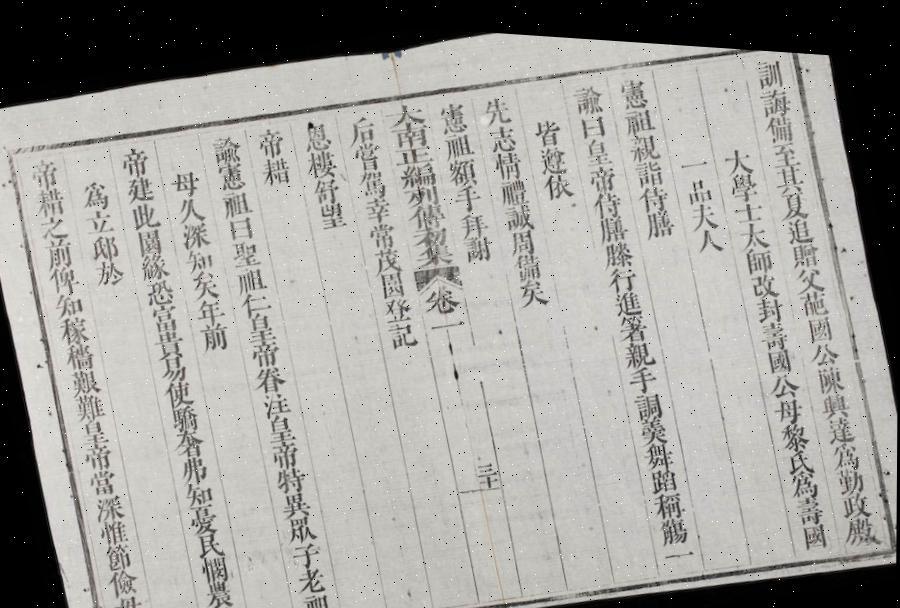 訓誨備至其夏追贈父葩國公陳興達為勤政殿
大學士太師改封壽國公母黎氏為壽國
一品夫人
憲祖親詣侍膳
諭曰皇帝侍膳膝行進箸親手調羹舞蹈稱觴一
皆遵依
先志情禮誠周備矣
憲祖額手拜謝
大南正編列傳初集 卷一 三十
后嘗駕幸常茂園登記
恩樓舒望
帝耤
諭憲祖曰聖祖仁皇帝眷注皇帝特異眾子老祖
母久深知矣年前
帝建此園緣恐富貴易使驕奢弗知憂民憫農
為立邸於
帝耤之前俾知稼穡艱難皇帝當深惟節儉